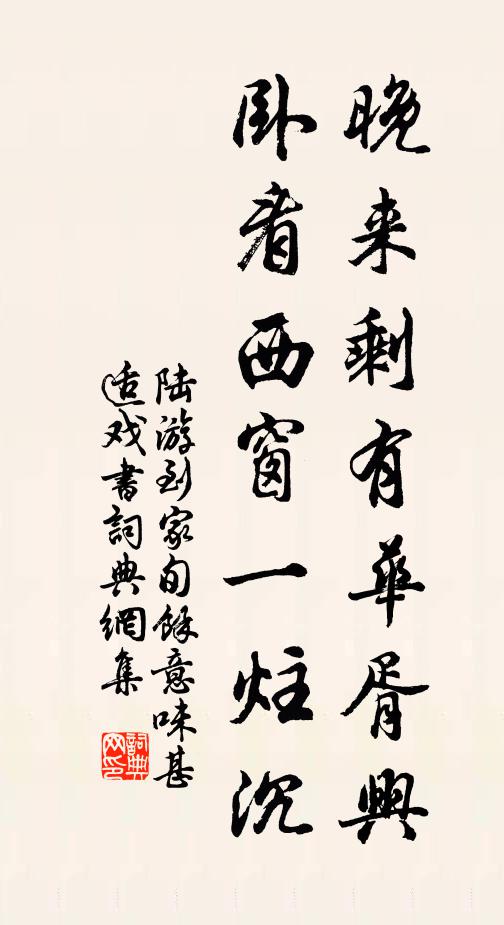 晚来剩有華胥興
卧看西窗一炷沉
陆游到家旬餘意味甚
适戏書詞典網集
詞典
网印